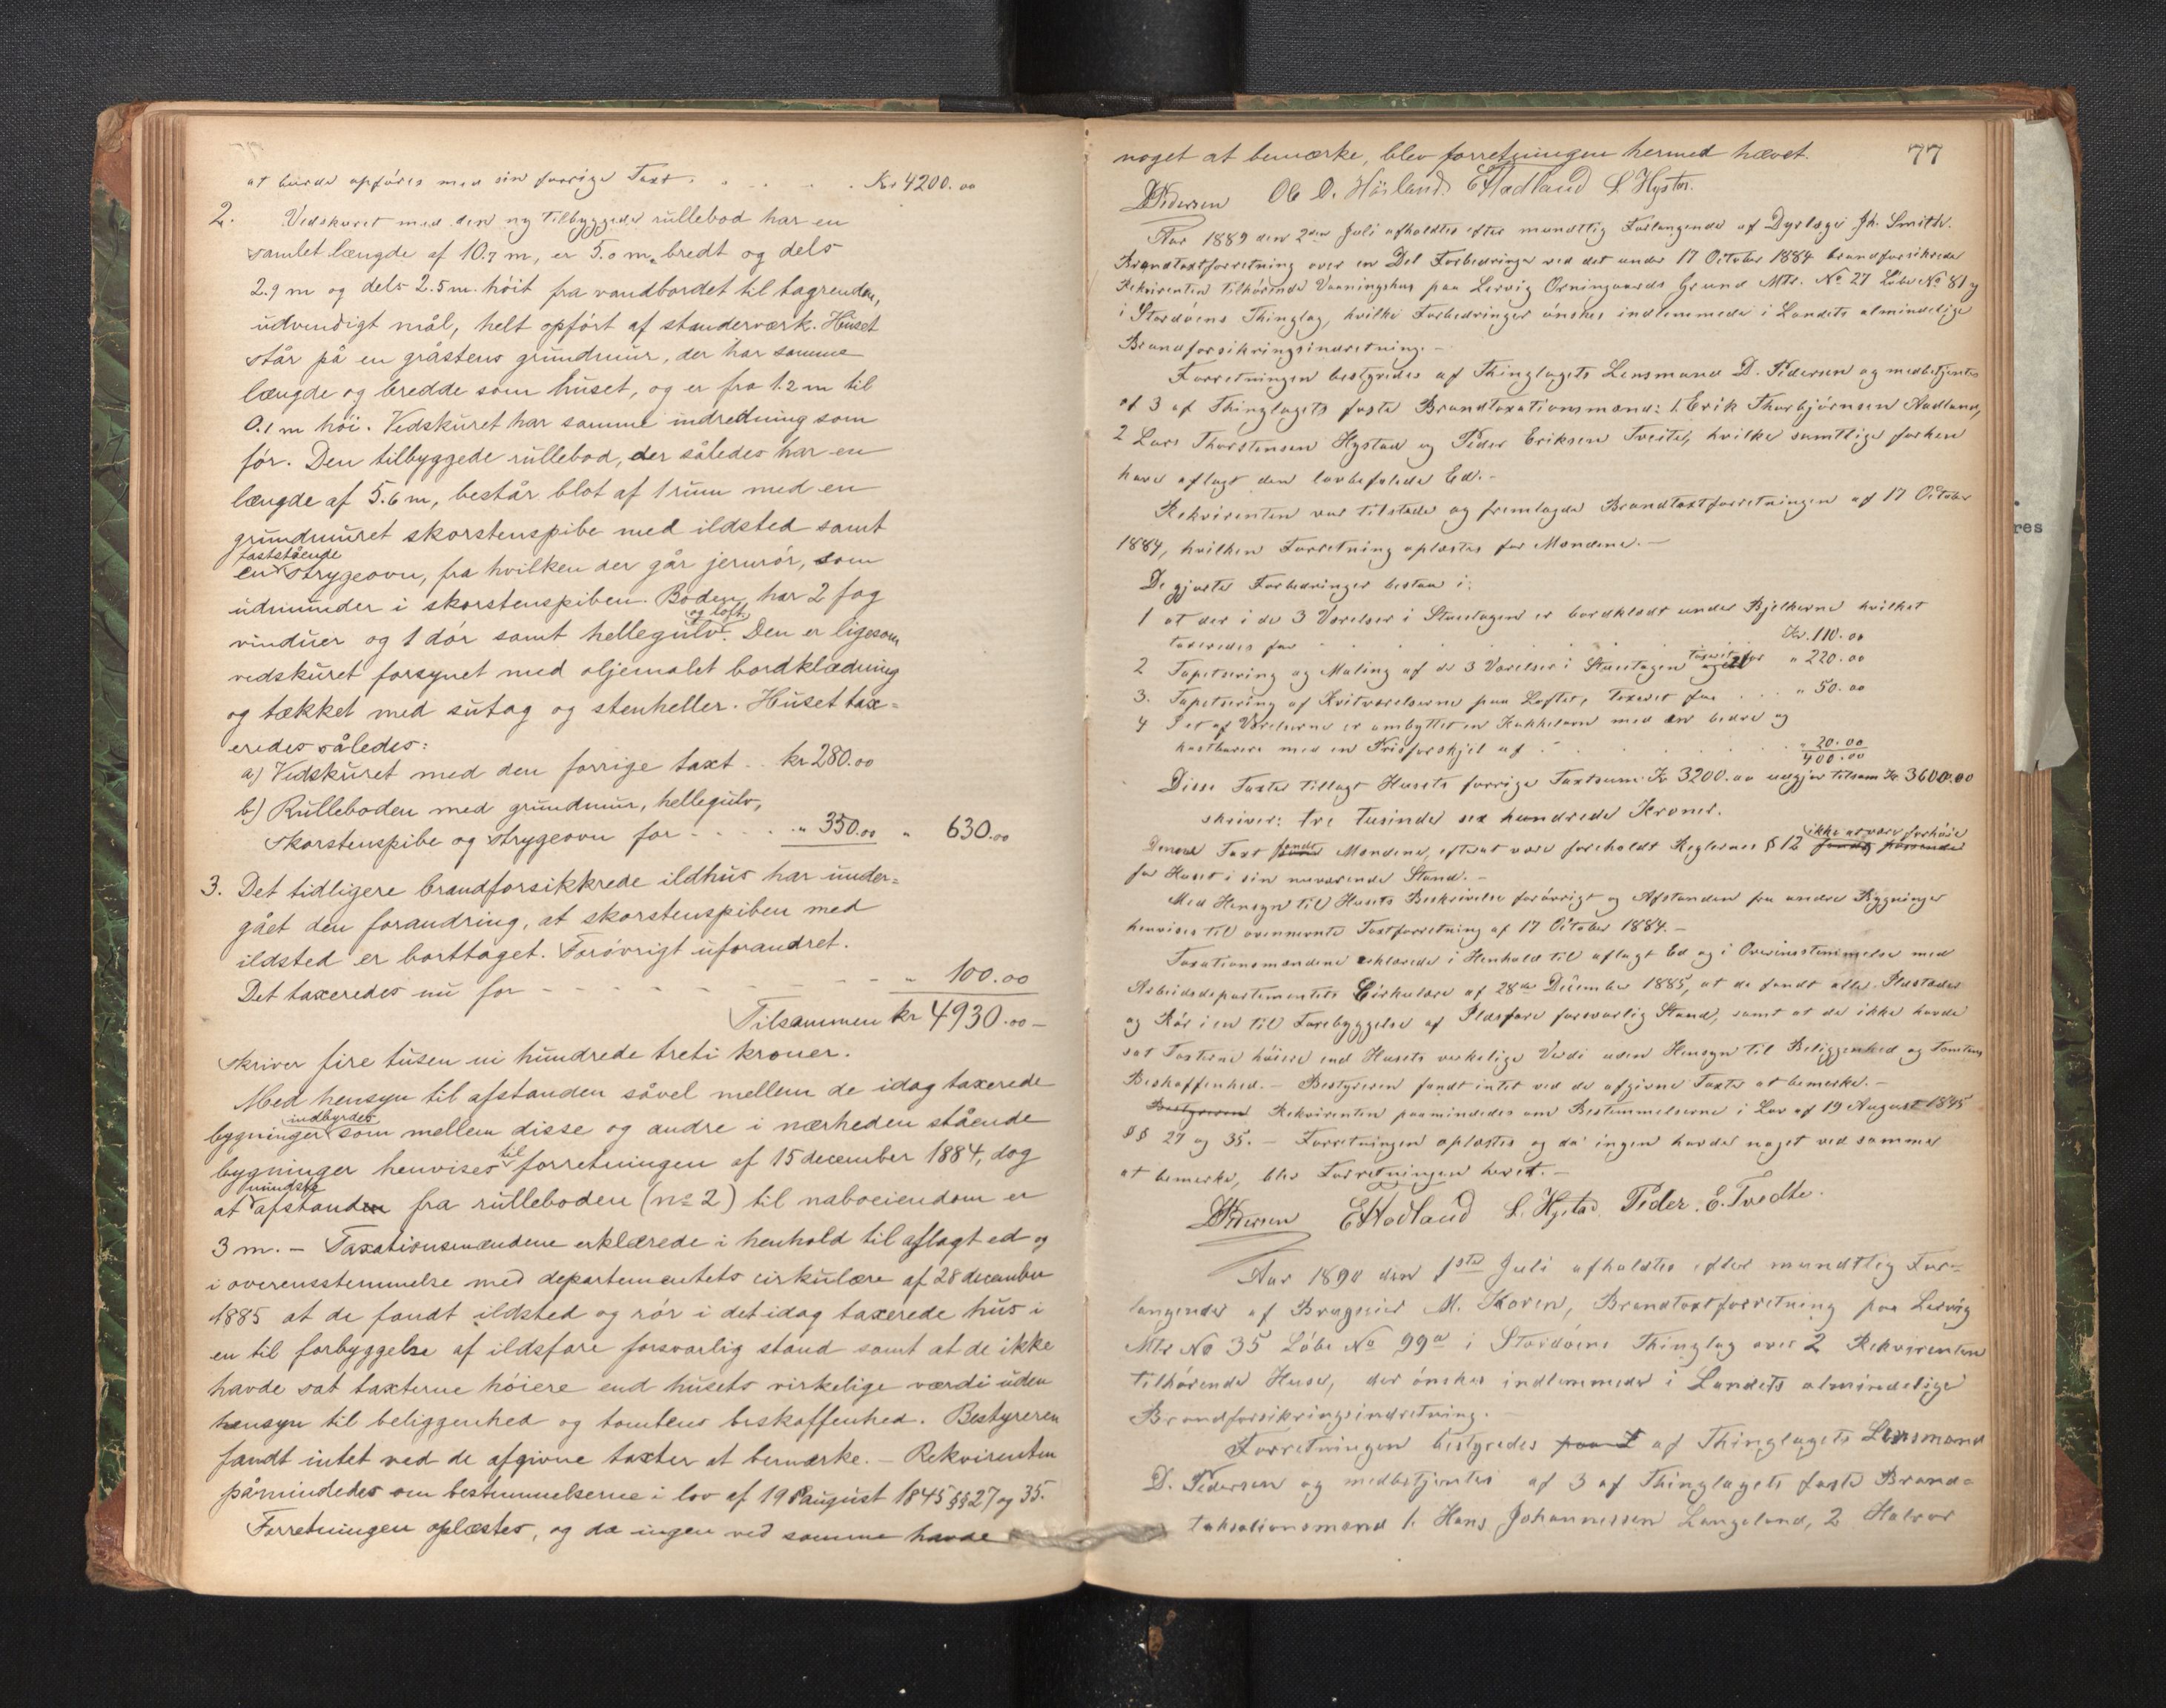 at burde opføres med sin forrige Taxt . . . . . . Kr 4200.00
2. Vedskuret med den ny tilbyggede rullebod har en
samlet længde af 10.7 m, er 5.0 m bredt og dels
2.9 m og dels 2.5 m. høit fra vandbordet til tagrenden,
udvendigt mål, helt opført af standerværk. Huset
står på en gråstens grundmur, der har samme
længde og bredde som huset, og er fra 1.2 m til
0.1 m høi. Vedskuret har samme indredning som
før. Den tilbyggede rullebod, der således har en
længde af 5.6 m, består blot af 1 rum med en
grundmuret skorstenspibe med ildsted samt
faststående
en strygeovn, fra hvilken der går jernrør, som
udmunder i skorstenspiben. Boden har 2 fag
og loft
vinduer og 1 dør samt hellegulv. Den er ligesom
vedskuret forsynet med oljemalet bordklædning
og tækket med sutag og stenheller. Huset tax=
eredes således:
a) Vedskuret med den forrige taxt . . kr 280.00
b) Rulleboden med grundmur, hellegulv,
skorstenspibe og strygeovn for - - - - " 350.00 " 630.00
3. Det tidligere brandforsikkrede ildhus har under=
gået den forandring, at skorstenspiben med
ildsted er borttaget. Forøvrigt uforandret.
Det taxeredes nu for - - - - - - - - " 100.00
Tilsammen kr 4930.00 -
skriver fire tusen ni hundrede treti kroner.
Med hensyn til afstanden såvel mellem de idag taxerede
indbyrdes
bygninger som mellem disse og andre i nærheden stående
til
bygninger henvises forretningen af 15 december 1884, dog
mindste
at afstanden fra rulleboden (no 2) til naboeiendom er
3 m. - Taxationsmændene erklærede i henhold til aflagt ed og
i overensstemmelse med departementets cirkulære af 28 december
1885 at de fandt ildsted og rør i det idag taxerede hus i
en til forbyggelse af ildsfare forsvarlig stand samt at de ikke
havde sat taxterne høiere end husets virkelige værdi uden
hensyn til beliggenhed og tomtens beskaffenhed. Bestyreren
fandt intet ved de afgivne taxter at bemærke. - Rekvirenten
påmindedes om bestemmelserne i lov af 19 august 1845 §§ 27 og 35.
Forretningen oplæstes, og da ingen ved samme havde
77
noget at bemærke, blev forretningen hermed hævet.
D Pedersen Ob O. Hörland. E Hadland L Hystad.
Aar 1889 den 2den Juli afholdtes efter mundtlig Forlangende af Dyrlæge Jh. Smith.
Brandtaxtforretning over en Del Forbedringer ved det under 17 October 1884 brandforsikrede
Rekvirenten tilhørende Vaaningshus paa Lervig Orninggaards Grund Mtr. No 27 Løbe No 81 y
i Stordøens Thinglag, hvilke Forbedringer ønskes indlemmede i Landets almindelige
Brandforsikringsindretning. -
Forretningen bestyredes af Thinglagets Lensmand D. Pedersen og medbetjentes
af 3 af Thinglagets faste Brandtaxationsmænd: 1. Erik Thorbjørnsen Aadland,
2 Lars Thorstensen Hystad og Peder Eriksen Tveite, hvilke samtlige forhen
have aflagt den lovbefalede Ed. -
Rekvirenten var tilstede og fremlagde Brandtaxtforretningen af 17 October
1884, hvilken Forretning oplæstes for Mændene. -
De gjorte Forbedringer bestaa i:
1 at der i de 3 Værelser i Stueetagen er bordklædt under Bjelkerne hvilket
taxeredes for . . . . . . . . Kr. 110.00
2 Tapetsering og Maling af de 3 Værelser i Stueetagen taxeret for " 220.00
3. Tapetsering af Kvistværelserne paa Loftet, taxeret for . . . " 50.00
4 I et af Værelserne er ombyttet en Kakkelovn med en bedre og
kostbarere med en Prisforskjel af . . . . . . . " 20.00
400.00
Disse Taxter tillagt Husets forrige Taxtsum Kr 3200.00 udgjør tilsam Kr 3600.00
skriver: tre tusinde sex hundrede Kroner.
ikke at være forhøie
Denne Taxt fandt Mændene, efterat være foreholdt Reglernes § 12 fandt passende
for Huset i sin nuværende Stand. -
Med Hensyn til Husets Beskrivelse forøvrigt og Afstanden fra andre Bygninger
henvises til ovennevnte Taxtforretning af 17 October 1884. -
Taxationsmændene erklærede i Henhold til aflagt Ed og i Overensstemmelse med
Arbeidsdepartementets Cirkulære af 28de December 1885, at de fandt alle Ildsteder
og Rør i en til Forebyggelse af Ildsfare forsvarlig Stand, samt at de ikke havde
sat Taxterne høiere end Husets verkelige Verdi uden Hensyn til Beliggenhed og Tomtens
Beskaffenhed. - Bestyreren fandt intet ved de afgivne Taxter at bemerke. -
Bestyreren Rekvirenten paamindedes om Bestemmelserne i Lov af 19 August 1845
§§ 27 og 35. - Forretningen oplæstes og da ingen havde noget ved samme
at bemerke, blev Forretningen hevet. -
D Pedersen E Hadland L. Hystad. Peder. E. Tvedte.
Aar 1890 den 1ste Juli afholdtes efter mundtlig For=
langende af Brugseier M. Koren, Brandtaxtforretning paa Lervig
Mtr No 35 Løbe No 99a i Stordøens Thinglag over 2 Rekvirenten
tilhørende Huse, der ønskes indlemmede i Landets almindelige
Brandforsikringsindretning.
Forretningen bestyredes af Thinglagets Lensmand
D. Pedersen og medbetjentes af 3 af Thinglagets faste Brand=
taksationsmænd 1. Hans Johannessen Langeland, 2 Halvor
res